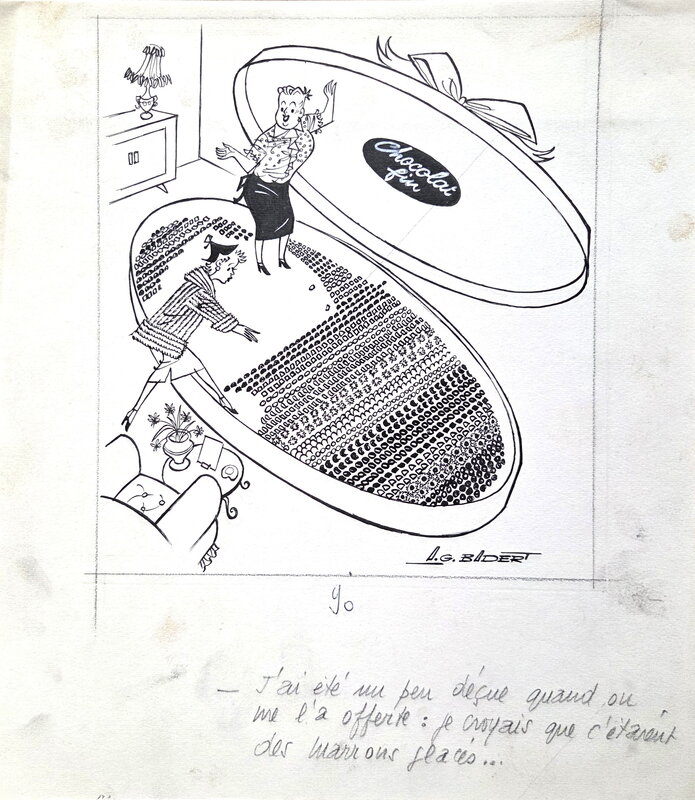 Chocolat
fin
A.G. BADERT
90
— J'ai été un peu déçue quand on
me l'a offerte : je croyais que c'étaient
des marrons glacés...